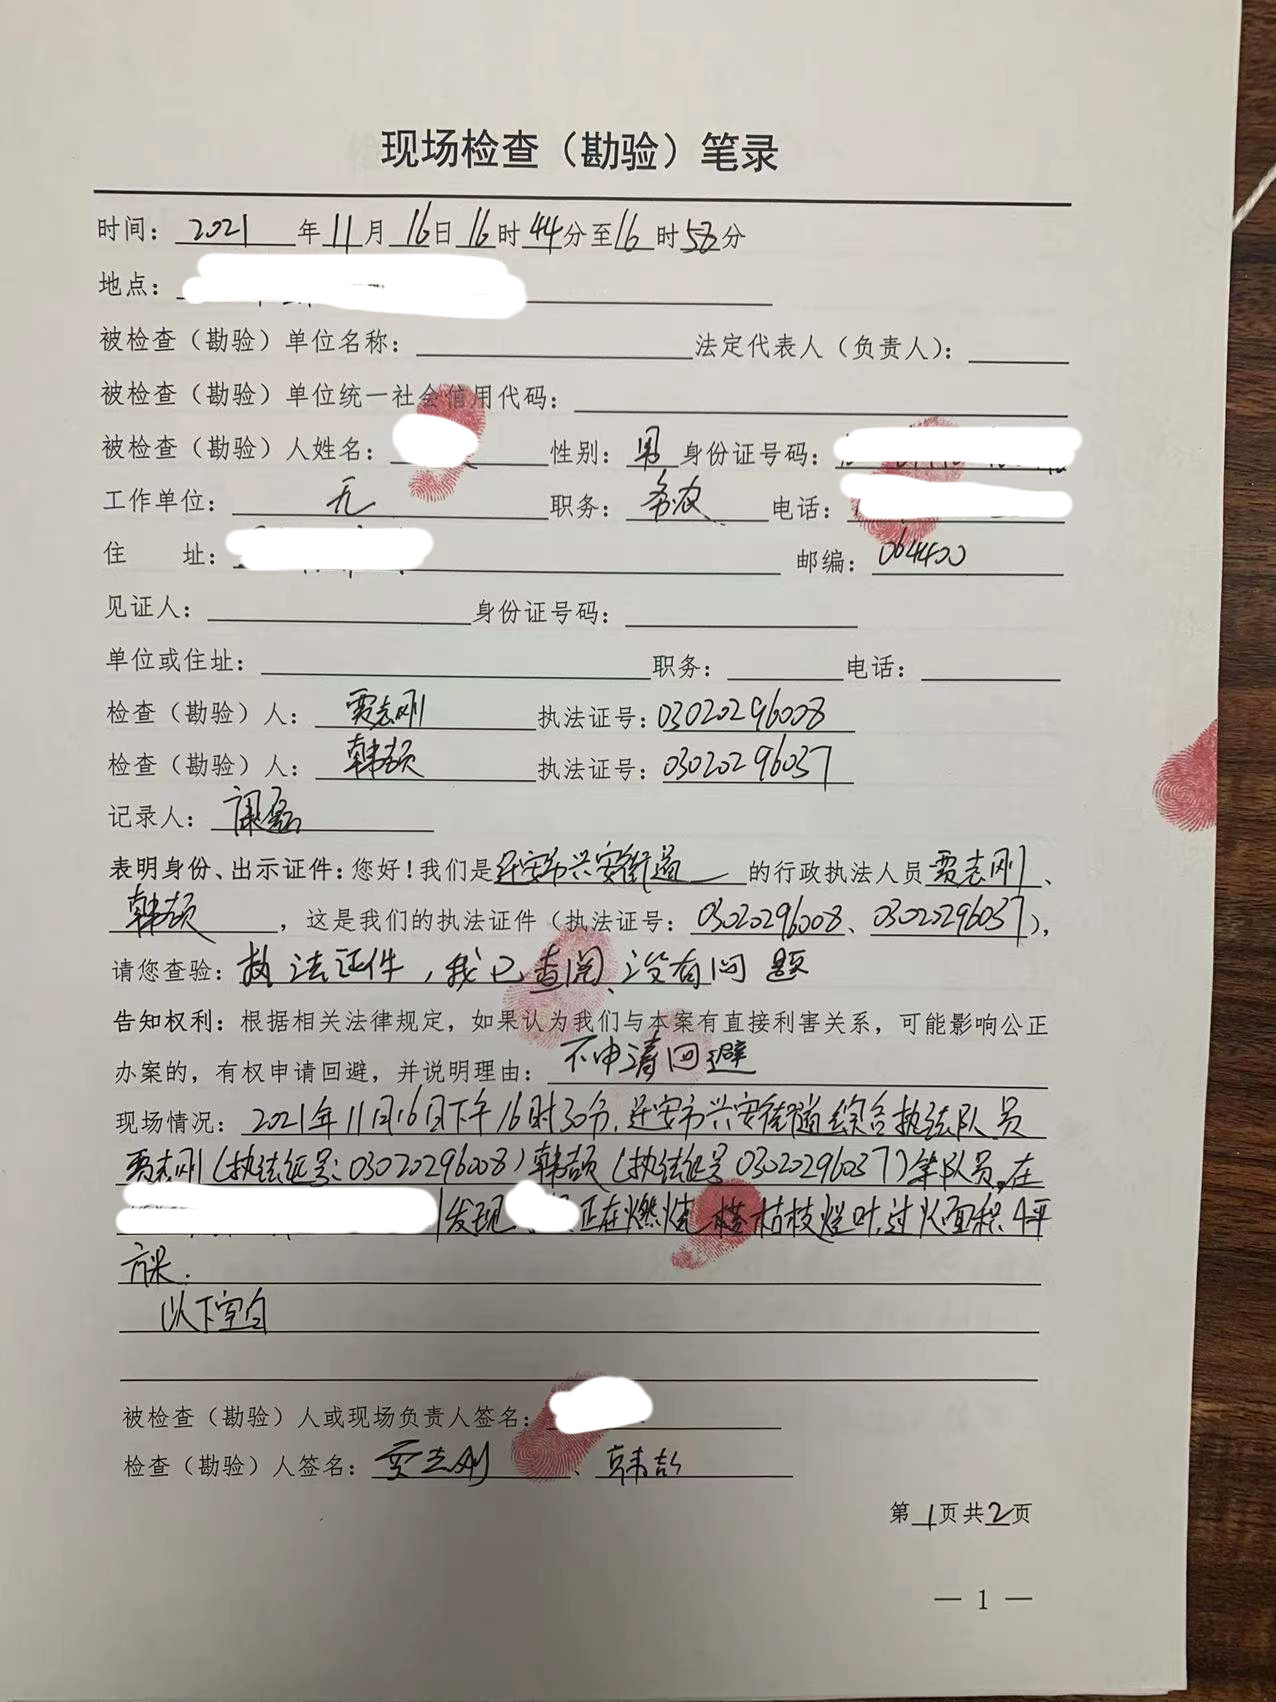 现场检查（勘验）笔录
时间：2021年11月16日16时44分至16时58分
地点：
被检查（勘验）单位名称： 法定代表人（负责人）：
被检查（勘验）单位统一社会信用代码：
被检查（勘验）人姓名： 性别：男 身份证号码：
工作单位：无 职务：务农 电话：
住 址： 邮编：064400
见证人： 身份证号码：
单位或住址： 职务： 电话：
检查（勘验）人：贾志刚 执法证号：03020296008
检查（勘验）人：韩颉 执法证号：03020296037
记录人：
表明身份、出示证件：您好！我们是迁安市兴安街道的行政执法人员贾志刚、
韩颉，这是我们的执法证件（执法证号：03020296008、03020296037），
请您查验：执法证件，我已查阅、没有问题
告知权利：根据相关法律规定，如果认为我们与本案有直接利害关系，可能影响公正
办案的，有权申请回避，并说明理由：不申请回避
现场情况：2021年11月16日下午16时30分，迁安市兴安街道综合执法队员
贾志刚（执法证号：03020296008）韩颉（执法证号03020296037）等队员，在
发现 正在燃烧 枯枝烂叶，过火面积4平
方米．
以下空白
被检查（勘验）人或现场负责人签名：
检查（勘验）人签名：贾志刚、韩颉
第1页共2页
— 1 —